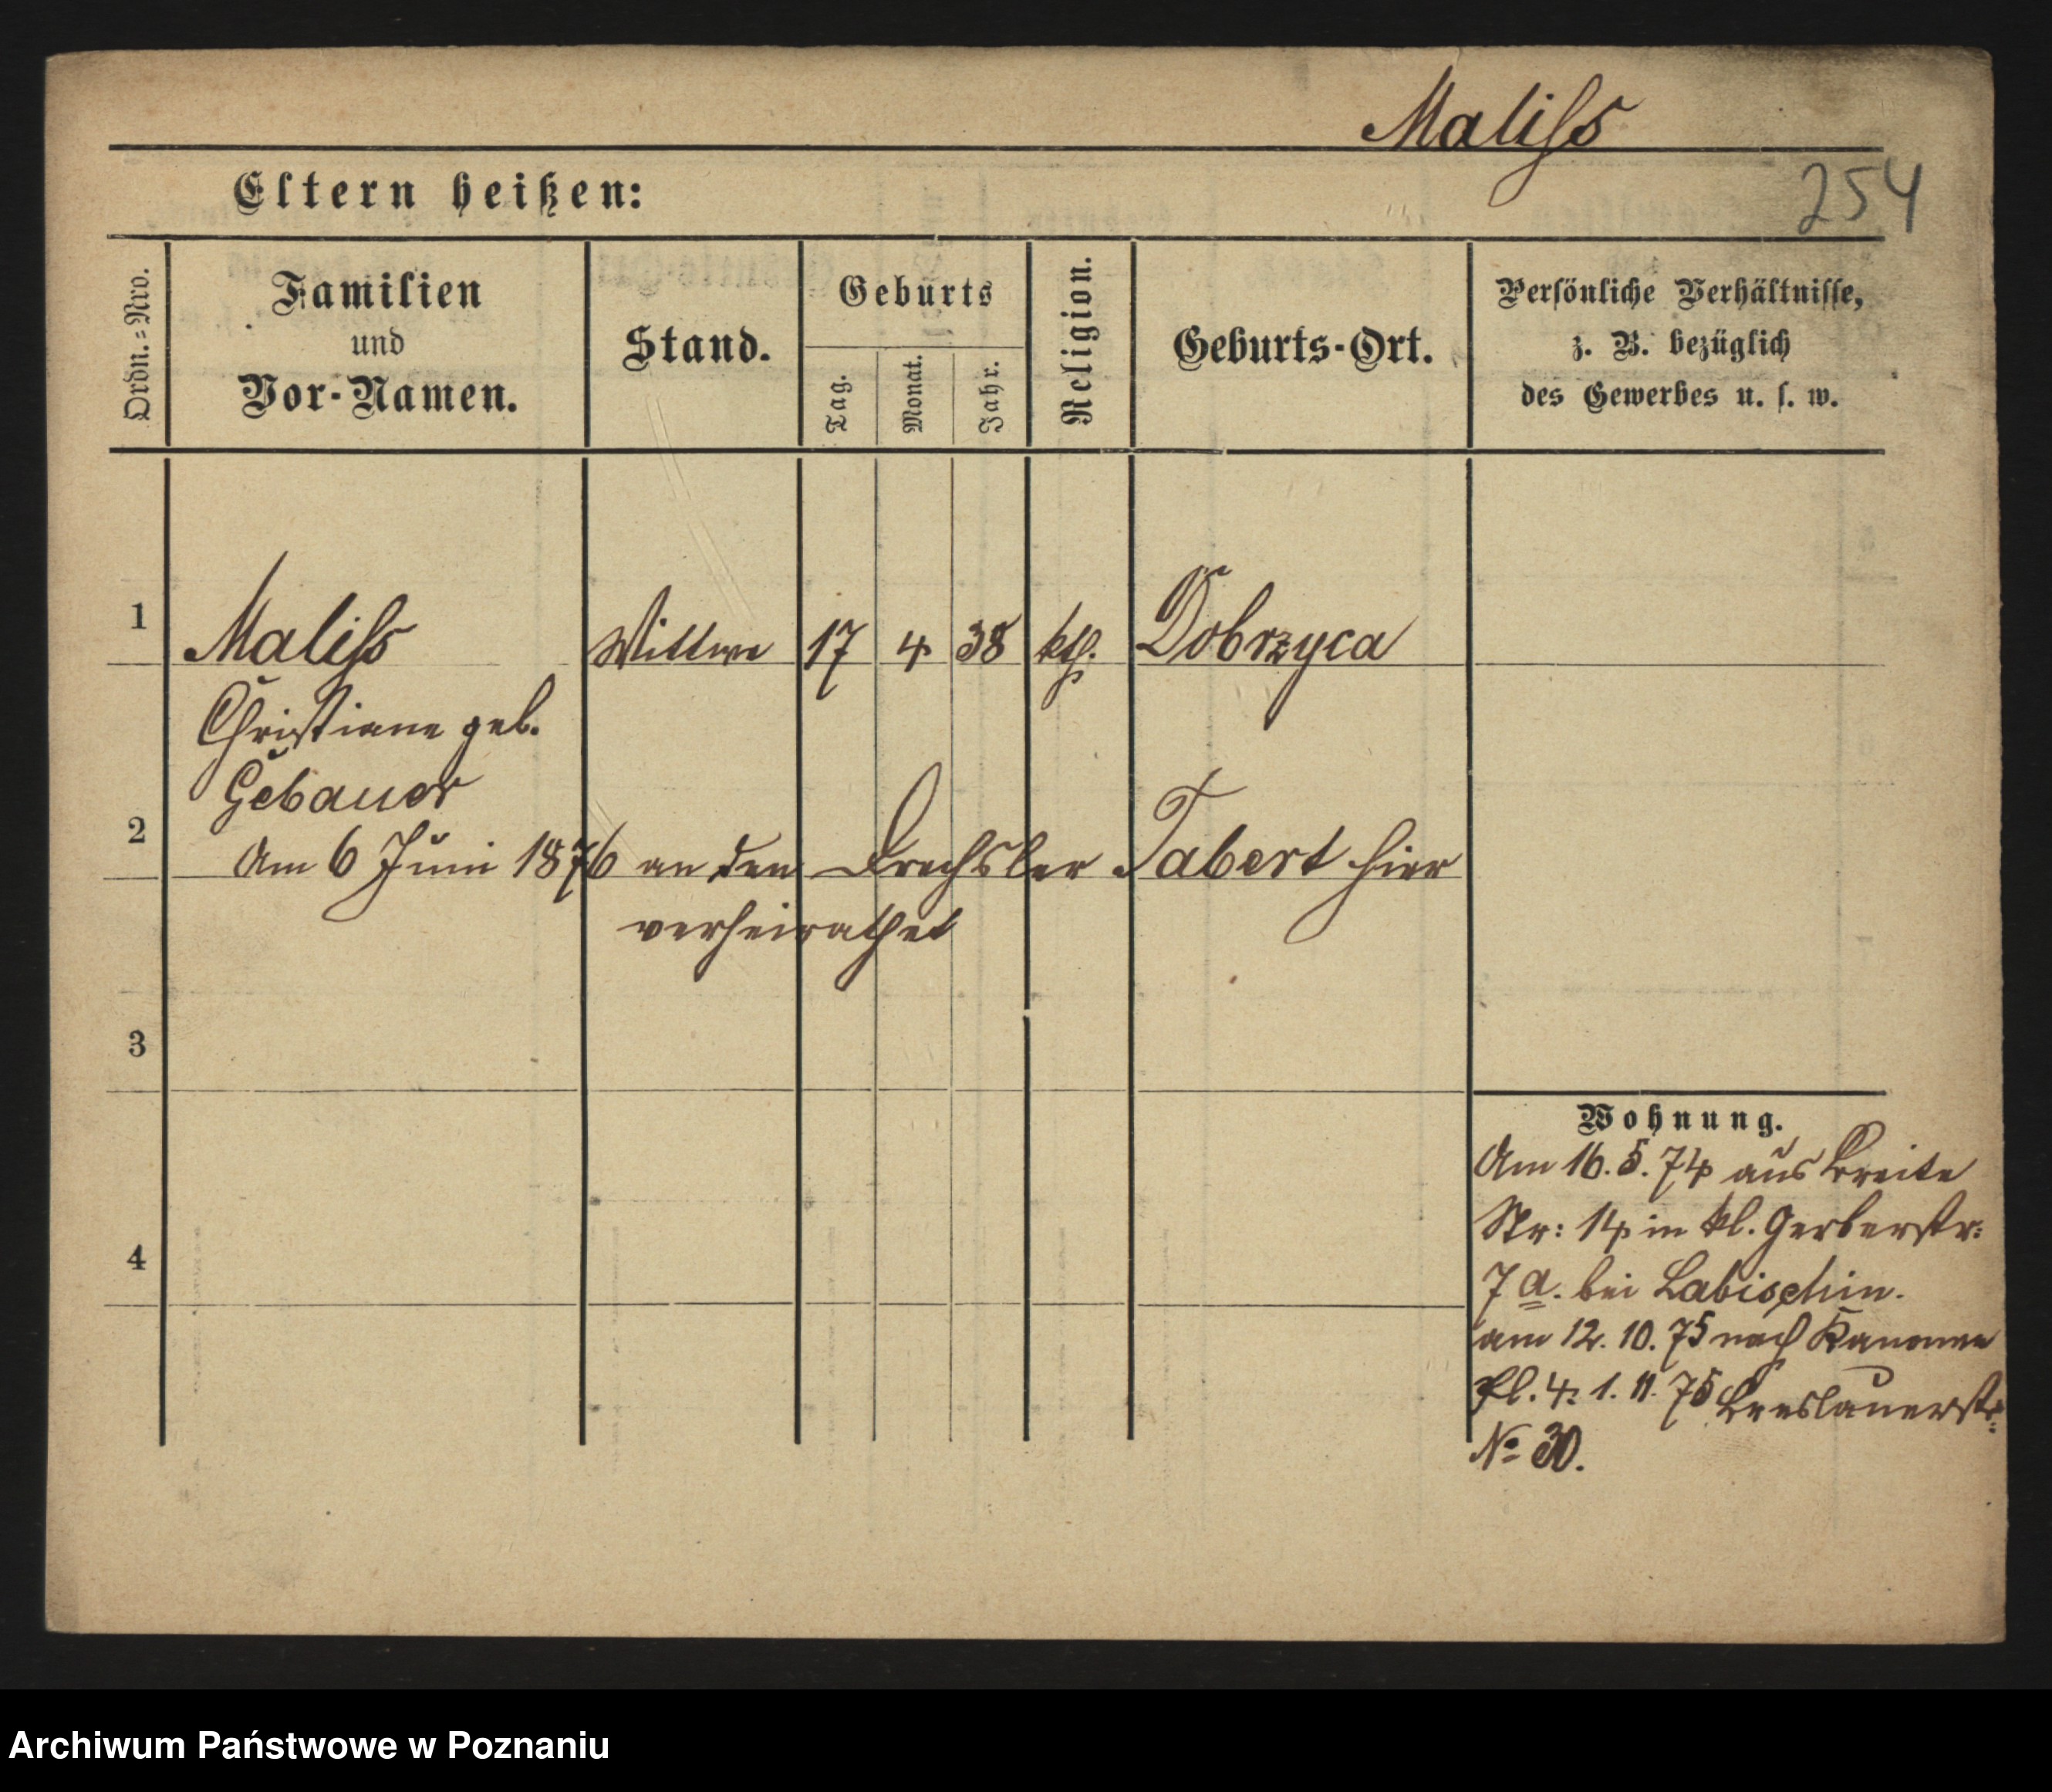 Maliſs
254
Eltern heißen:
Ordn.=Nro.
Familien
und
Vor-Namen.
Stand.
Geburts
Tag.
Monat.
Jahr.
Religion.
Geburts-Ort.
Persönliche Verhältnisse,
z. B. bezüglich
des Gewerbes u. s. w.
1 Maliſs Wittwe 17 4 38 kth. Dobrzyca
Christiane geb.
Gebauer
2
Am 6 Juni 1876 an den Drechsler Tabert hier
verheirathet
3
4
Wohnung.
Am 16. 5. 74 aus Breite
Str: 14 in kl. Gerberstr:
7 a. bei Labischin.
am 12. 10. 75 nach Kanonen
Pl. 4. 1. 11. 75 Breslauerstr:
No 30.
Archiwum Państwowe w Poznaniu